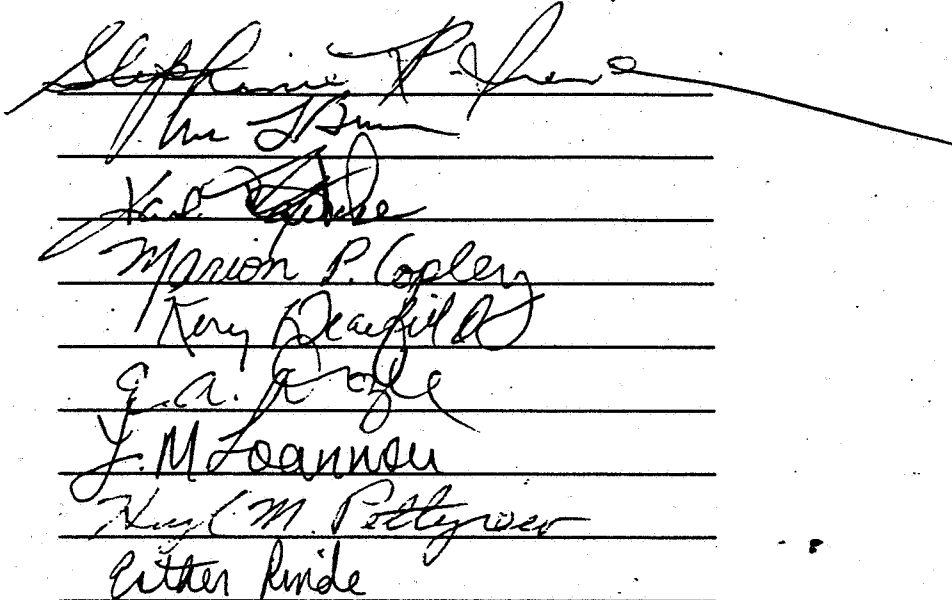 Stephanie P. Irene
L Bur
Karl Baetcke
Marion P. Copley
Kerry Dearfield
E. A. Doyle
Y. M Ioannou
Hugh M. Pettigrew
Esther Rinde